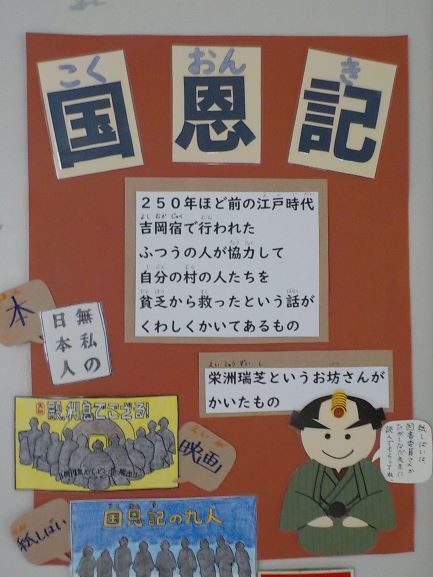 こく おん き
国 恩 記
２５０年ほど前の江戸時代
吉岡宿で行われた
ふつうの人が協力して
自分の村の人たちを
貧乏から救ったという話が
くわしくかいてあるもの
栄洲瑞芝というお坊さんが
かいたもの
本
無私の
日本人
殿、利息でござる!
映画
国恩記の九人
紙しばい
紙しばいは、
図書委員さんか